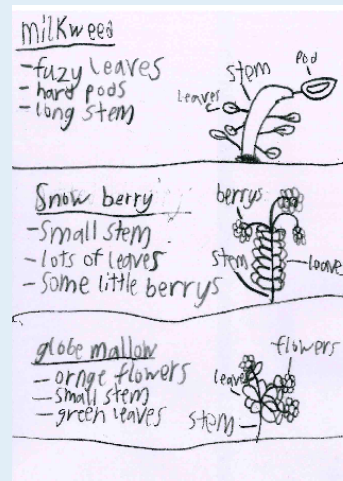 milkweed
- fuzy leaves
- hard pods
- long stem
stem
Pod
leaves
Snow berry
- Small stem
- lots of leaves
- Some little berrys
berrys
stem
leave
globe mallow
- ornge flowers
- small stem
- green leaves
flowers
leave
stem